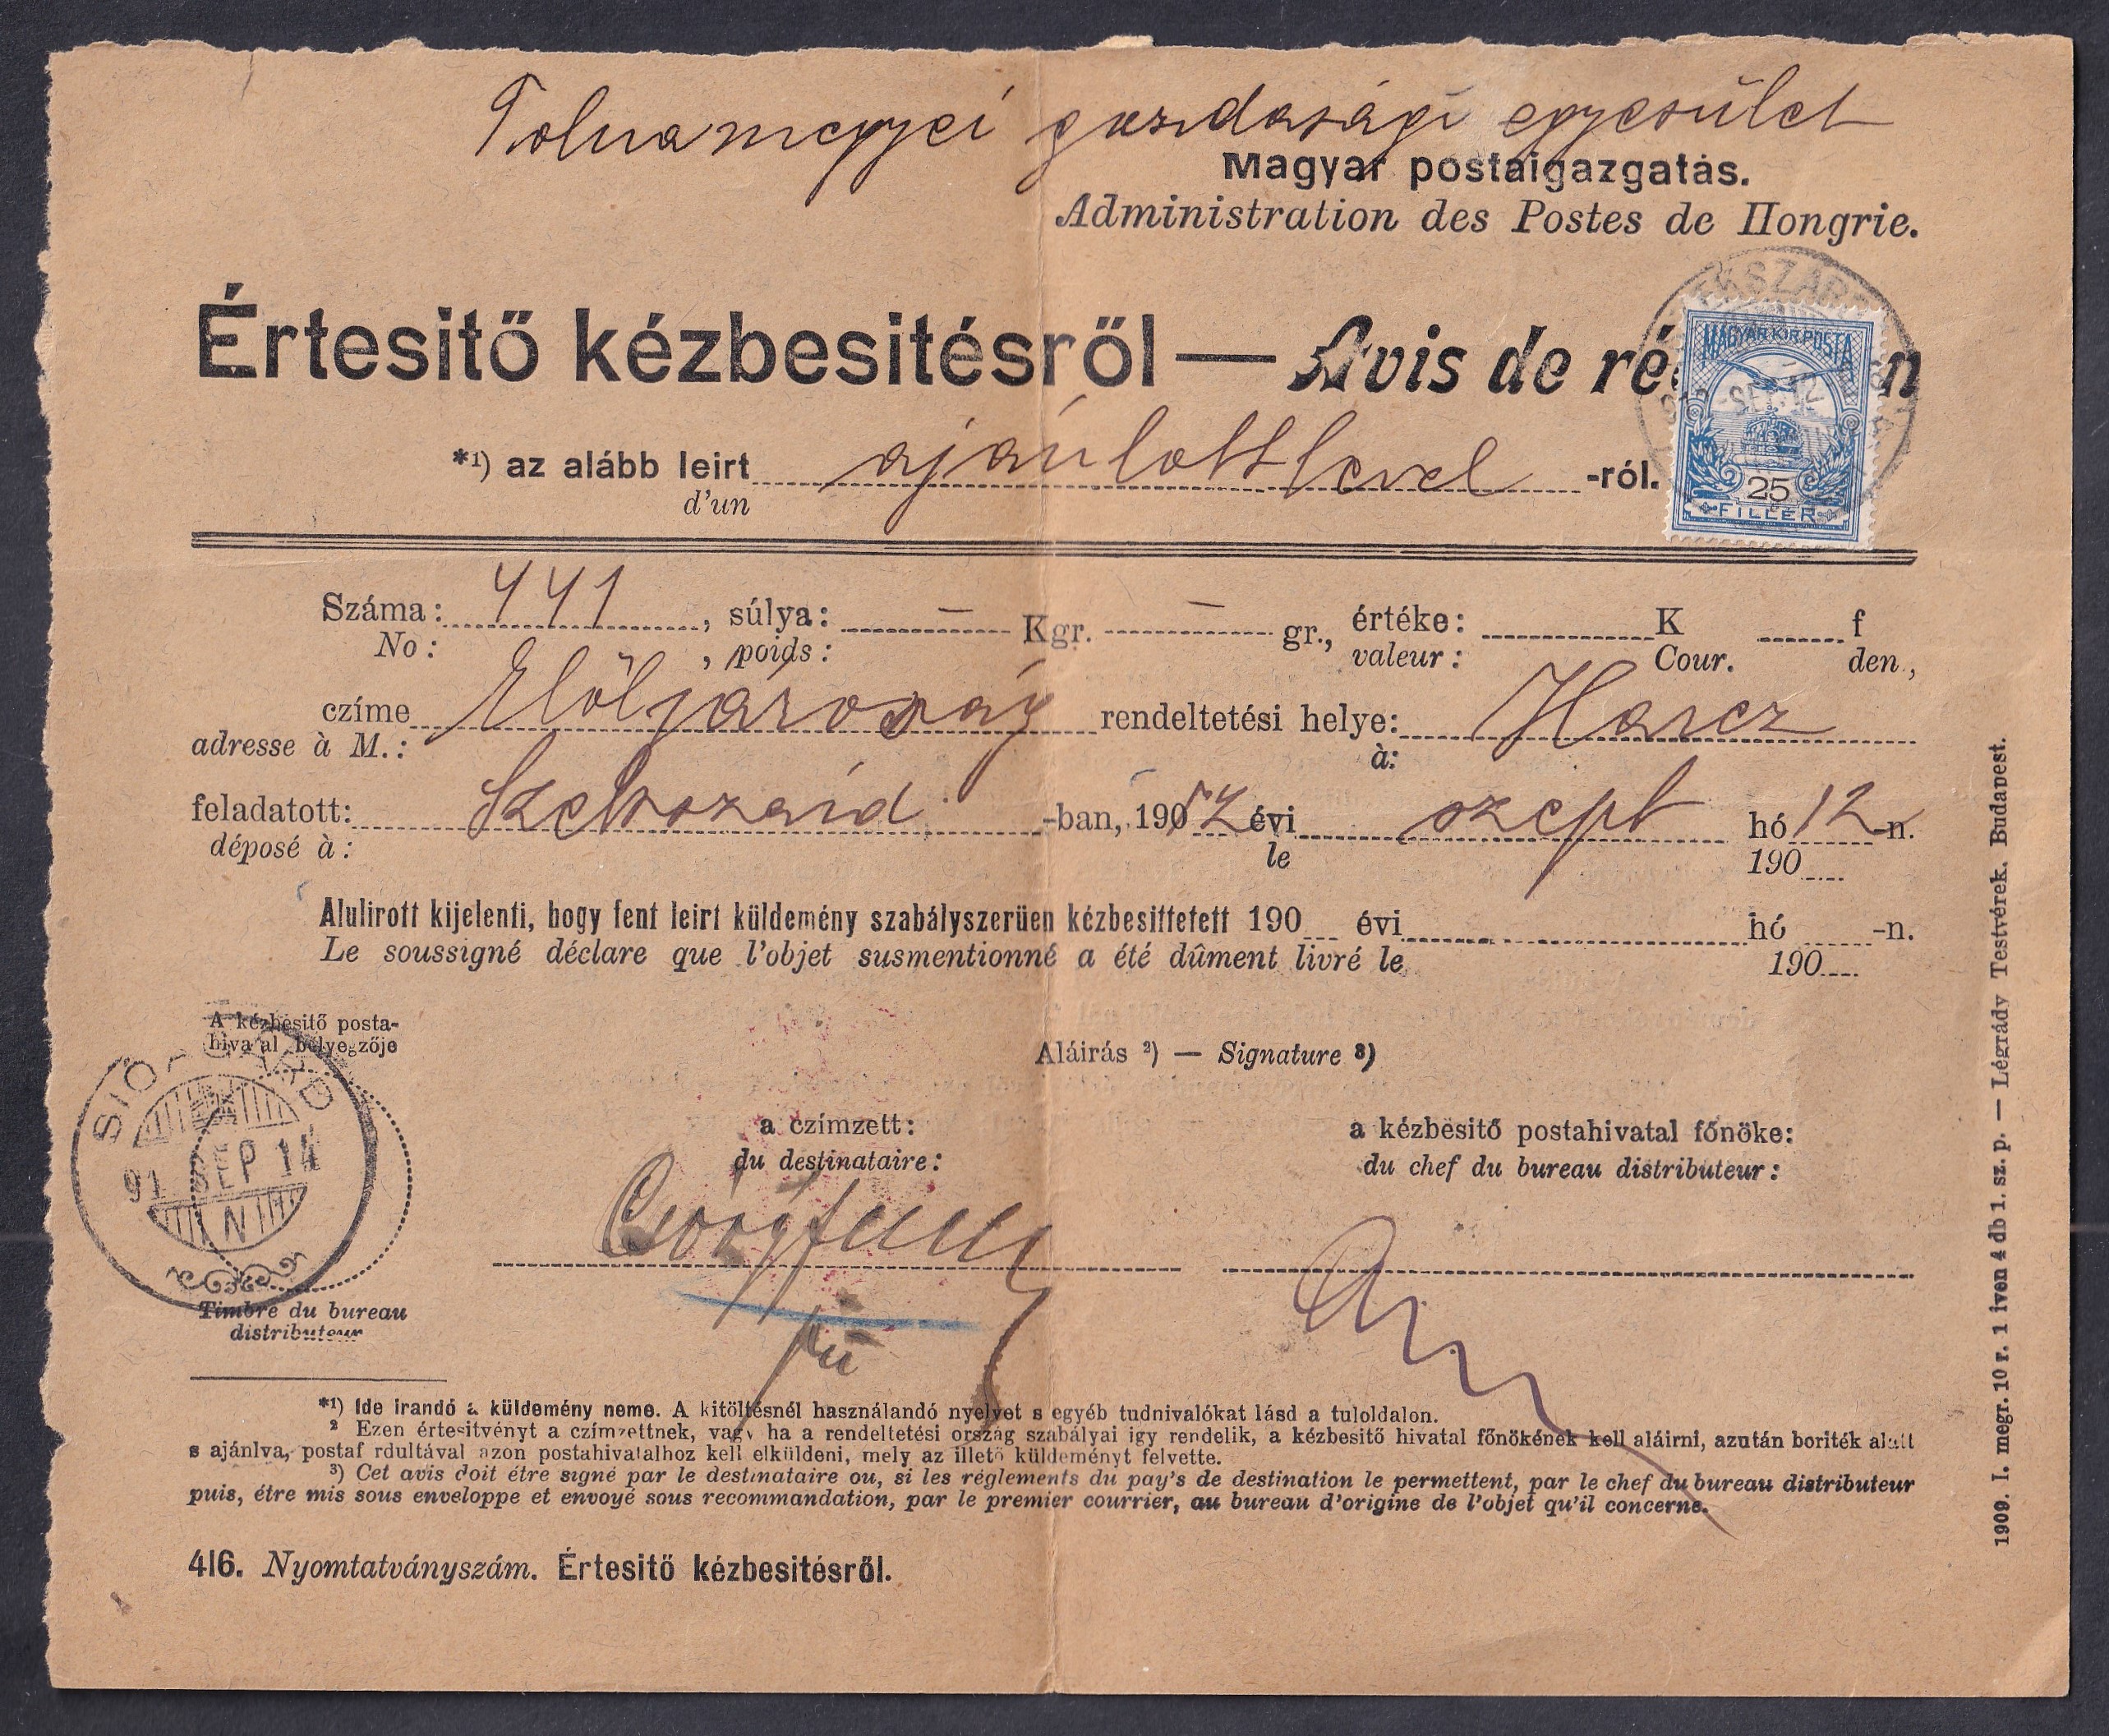 Tolnamegyei gazdasági egyesület
Magyar postaigazgatás.
Administration des Postes de Hongrie.
Értesitő kézbesitésről — Avis de ré n
MAGYAR KIR. POSTA
SEP. 12
25
FILLÉR
*¹) az alább leirt ajánlott level -ról.
d'un
Száma: 441, súlya: — Kgr. — gr., értéke: K f
No: , poids: valeur: Cour. den.,
czíme Elöljáróság rendeltetési helye: Harcz
adresse à M.: à:
feladatott: Szekszárd -ban, 190 évi szept hó 12-n.
déposé à: le 190
Alulirott kijelenti, hogy fent leirt küldemény szabályszerüen kézbesittetett 190 évi hó -n.
Le soussigné déclare que l'objet susmentionné a été dûment livré le 190
A kézbesitő posta-
hivatal bélyegzője
SIÓ-AGÁRD
SEP 14
N
Timbre du bureau
distributeur
Aláirás ²) — Signature ³)
a czímzett:
du destinataire:
a kézbesitő postahivatal főnöke:
du chef du bureau distributeur:
*¹) Ide irandó a küldemény neme. A kitöltésnél használandó nyelvet s egyéb tudnivalókat lásd a tuloldalon.
² Ezen értesitvényt a czímzettnek, vagy ha a rendeltetési ország szabályai igy rendelik, a kézbesitő hivatal főnökének kell aláirni, azután boriték alatt
s ajánlva, postafordultával azon postahivatalhoz kell elküldeni, mely az illető küldeményt felvette.
³) Cet avis doit étre signé par le destinataire ou, si les réglements du pay's de destination le permettent, par le chef du bureau distributeur
puis, étre mis sous enveloppe et envoyé sous recommandation, par le premier courrier, au bureau d'origine de l'objet qu'il concerne.
416. Nyomtatványszám. Értesitő kézbesitésről.
1909. I. megr. 10 r. 1 iven 4 db 1. sz. p. — Légrády Testvérek. Budapest.